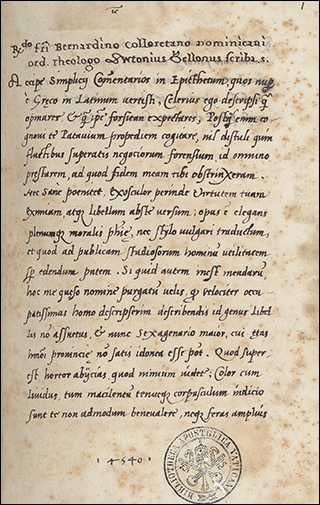 R.do frī Bernardino Colloretano dominicani
ord. Theologo Antonius Bellonus scriba. s.
Accipe Simplicij Commentarios in Epicthetum, quos nup
è Greco in Latinum vertisti, Celerius ego descripsi q̃
opinarer & q̃ ipse forsitan expectares, Postq̃ enim cog
noui te Patauium propediem cogitare, nil distuli quin
fluctibus superatis negociorum forensium id omnino
prestarem, ad quod fidem meam tibi obstrinxeram.
Nec Sane poenitet, exosculor perinde Virtutem tuam
eximiam, atq libellum abs te versum, opus è elegans
plenumq moralis phiȩ, nec stylo vulgari traductum,
et quod ad publicam studiosorum hominũ utilitatem
edendum putem. Si quid autem inest mendarũ
hoc me queso nomine purgatũ velis, q velociter occu
patissimus homo descripserim describendis id genus libel
lis nõ assuetus, & nunc Sexagenario maior, cui ȩtas
prouinciȩ nõ satis idonea esse põt. Quod super
est hortor abijcias quod nimium vides, Color cum
liuidus, tum macilentũ tenueq corpusculum indicio
sunt te non admodum beneualere, neq feras amplius
1540
BIBLIOTHECA APOSTOLICA VATICANA